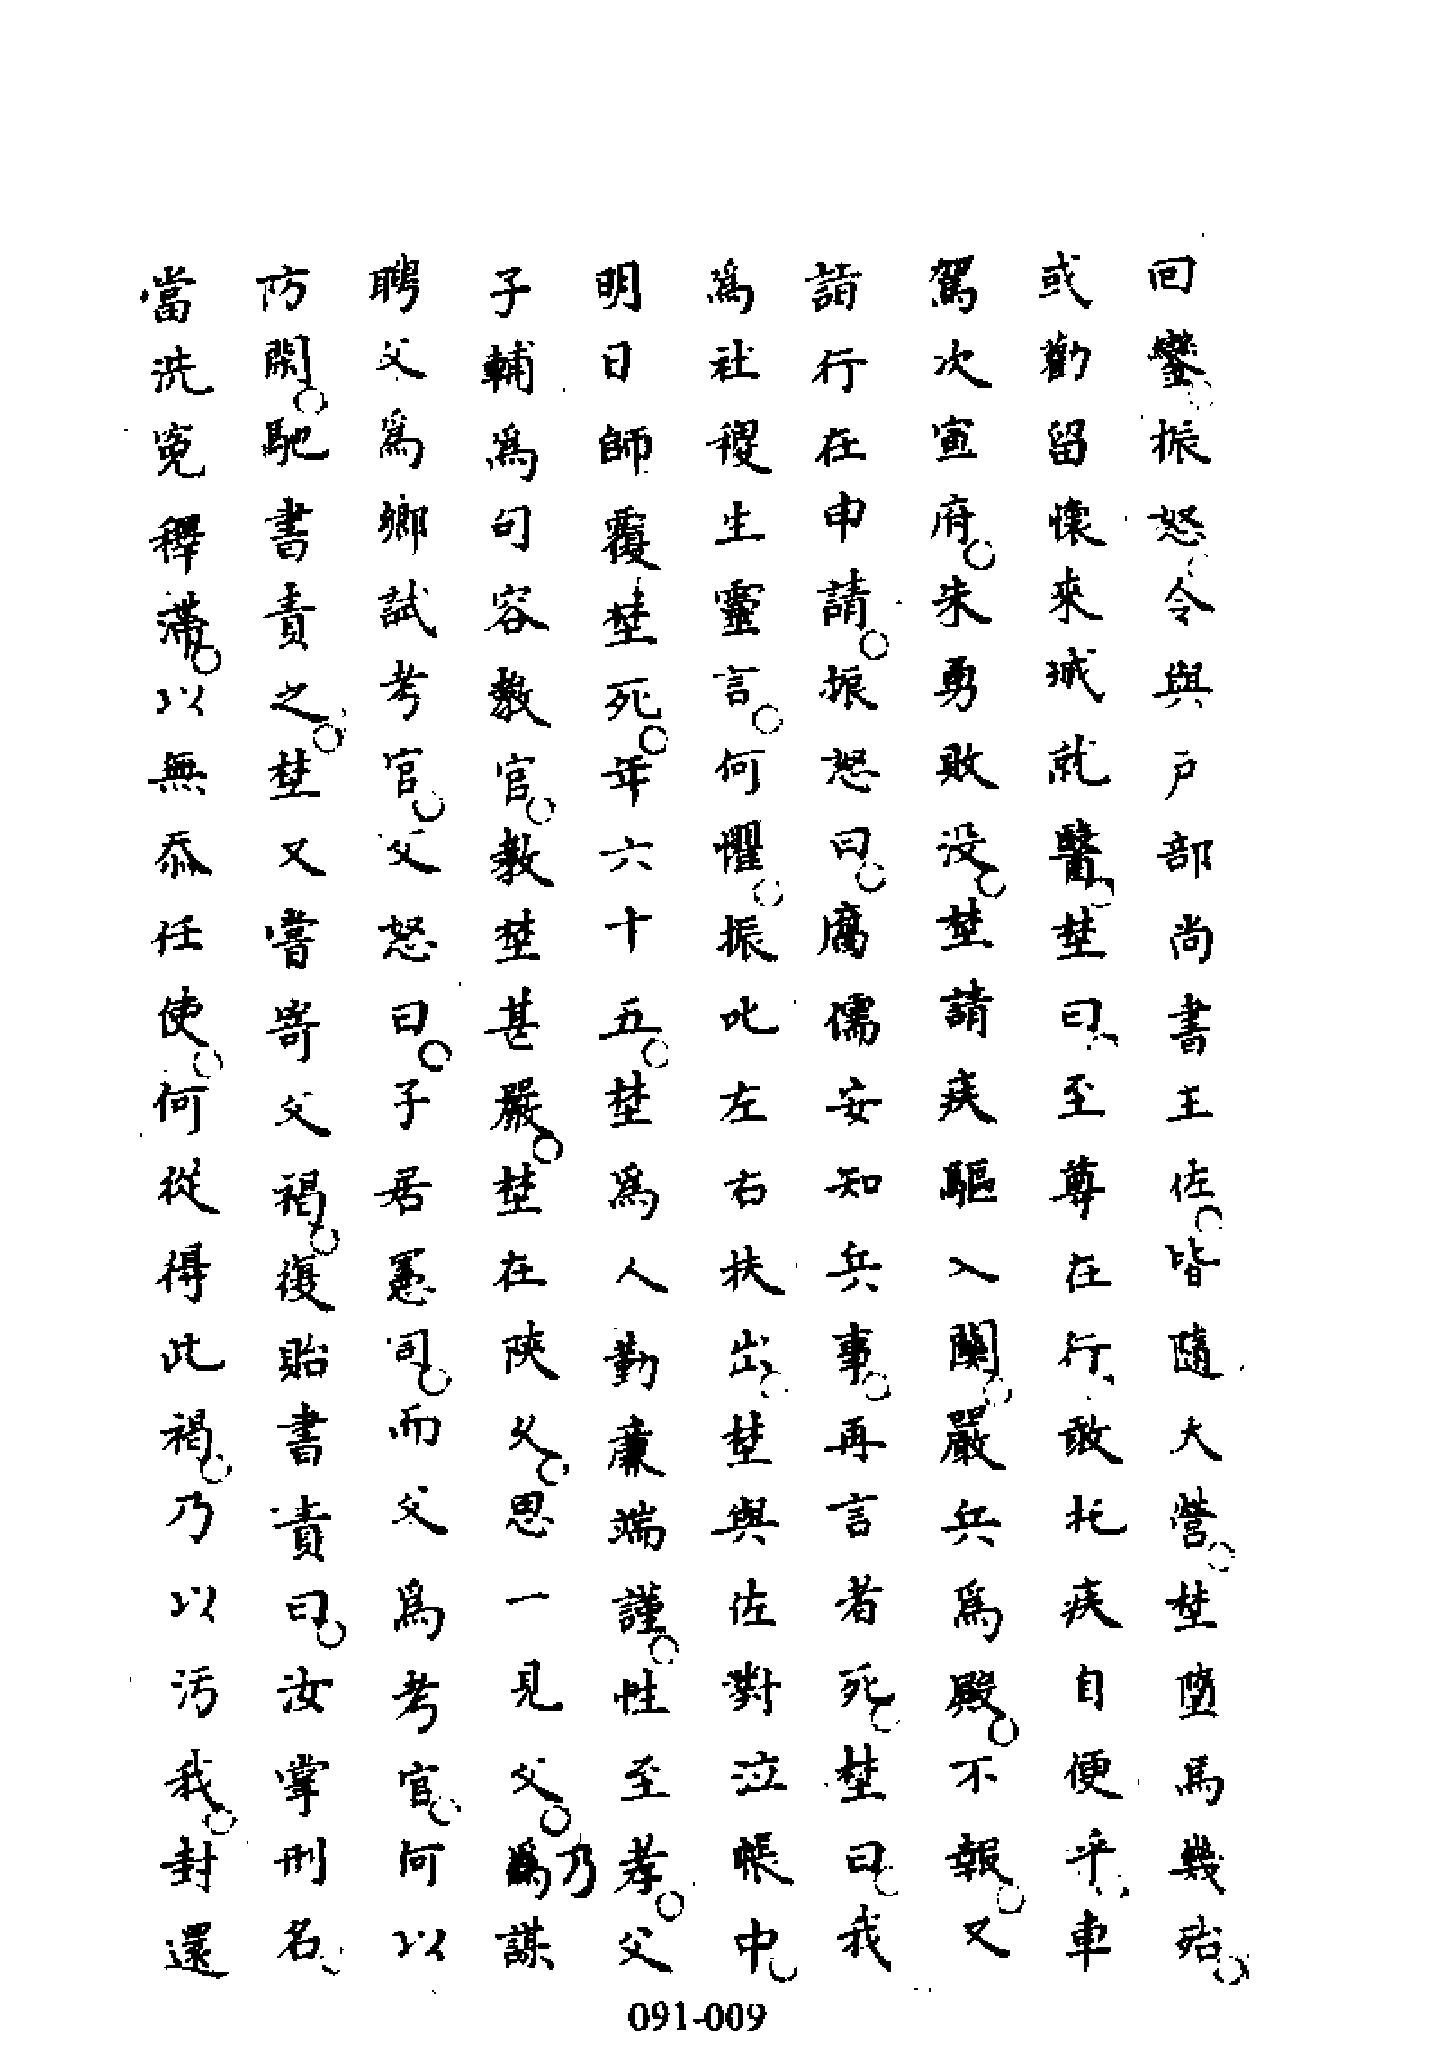 回鑾振怒令與戶部尚書王佐皆隨大營埜墮馬幾殆
或勸留懷來城就醫埜曰至尊在行敢托疾自便乎車
駕次宣府朱勇敗没埜請疾驅入關嚴兵爲殿不報又
詣行在申請振怒曰腐儒安知兵事再言者死埜曰我
爲社稷生靈言何懼振叱左右扶出埜與佐對泣帳中
明日師覆埜死年六十五埜爲人勤廉端謹性至孝父
子輔爲句容教官教埜甚嚴埜在陝久思一見父乃謀
聘父爲鄉試考官父怒曰子居憲司而父爲考官何以
防閑馳書責之埜又嘗寄父褐復貽書責曰汝掌刑名
當洗冤釋滯以無忝任使何從得此褐乃以污我封還
091-009